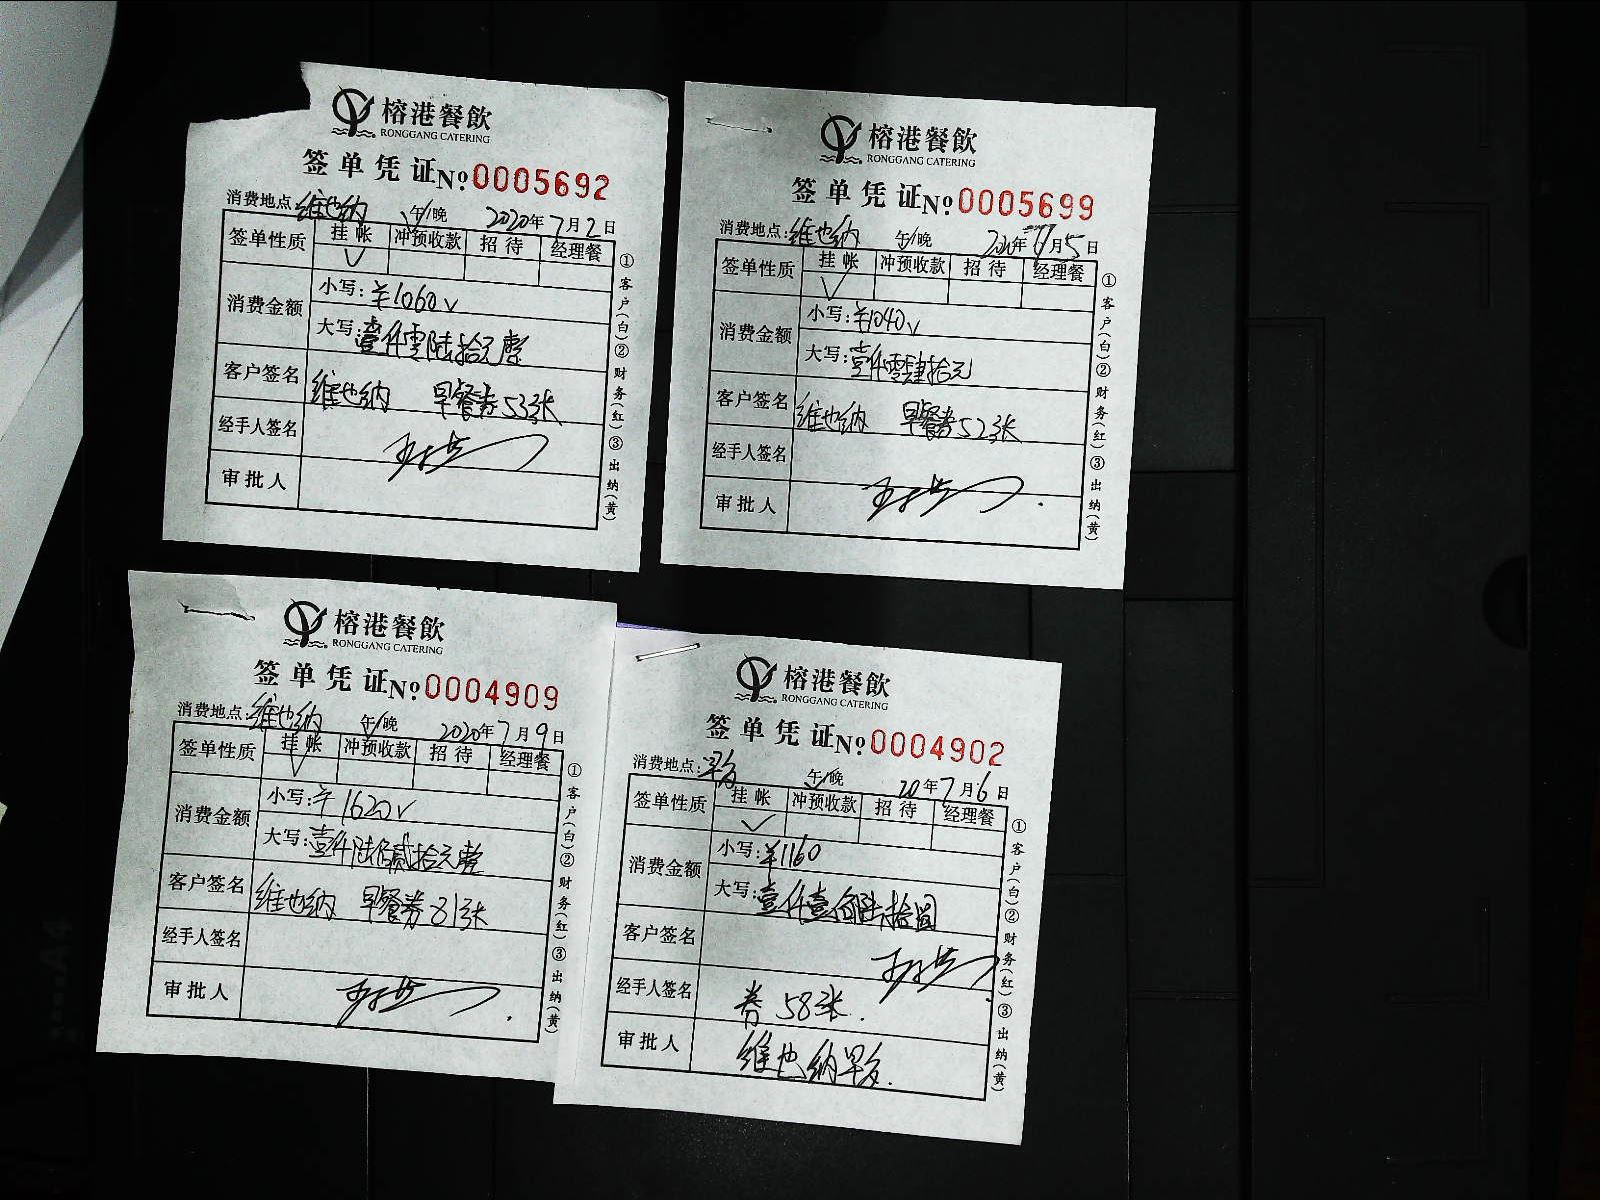 榕港餐飲
RONGGANG CATERING
签单凭证 №0005692
消费地点:维也纳 午/晚 2020年7月2日
签单性质 挂帐 冲预收款 招待 经理餐
✓
消费金额 小写:¥1060
大写:壹仟零陆拾元整
客户签名 维也纳 早餐券53张
经手人签名
审批人
①客户(白)②财务(红)③出纳(黄)
榕港餐飲
RONGGANG CATERING
签单凭证 №0005699
消费地点:维也纳 午/晚 2020年7月5日
签单性质 挂帐 冲预收款 招待 经理餐
✓
消费金额 小写:¥1040
大写:壹仟零肆拾元
客户签名 维也纳 早餐券52张
经手人签名
审批人
①客户(白)②财务(红)③出纳(黄)
榕港餐飲
RONGGANG CATERING
签单凭证 №0004909
消费地点:维也纳 午/晚 2020年7月9日
签单性质 挂帐 冲预收款 招待 经理餐
✓
消费金额 小写:¥1620
大写:壹仟陆佰贰拾元整
客户签名 维也纳 早餐券81张
经手人签名
审批人
①客户(白)②财务(红)③出纳(黄)
榕港餐飲
RONGGANG CATERING
签单凭证 №0004902
消费地点: 午/晚 20年7月6日
签单性质 挂帐 冲预收款 招待 经理餐
✓
消费金额 小写:¥1160
大写:壹仟壹佰陆拾圆
客户签名
经手人签名 券58张.
审批人 维也纳早
①客户(白)②财务(红)③出纳(黄)